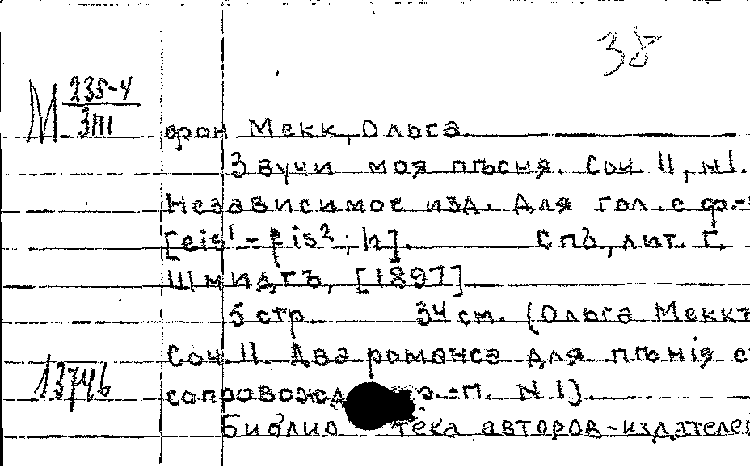 38
М 235-4
3III
фон Мекк, Ольга.
Звучи моя пѣсня. Соч 11, №1.
Независимое изд. Для гол. с ф.-
[eis¹-fis²; h]. Спб, лит. Г.
Шмидтъ, [1897]
5 стр. 34 см. (Ольга Меккъ
Соч. 11. Два романса для пѣнія с
13746
сопровожд -п. N 1).
Библиотека авторов-издателей